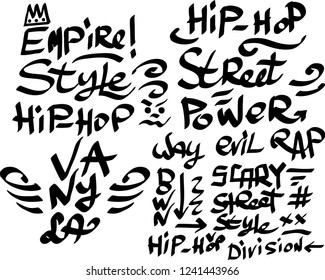 EMPiRE!
StyLE
HiP-HOP
VA
Ny
LA
HiP-HOP
StREEt
PoWER
Way EviL RAP
DOWN
SCARY
StREEt #
StyLE xx
HiP-HoP DiviSioN
shutterstock.com · 1241443966